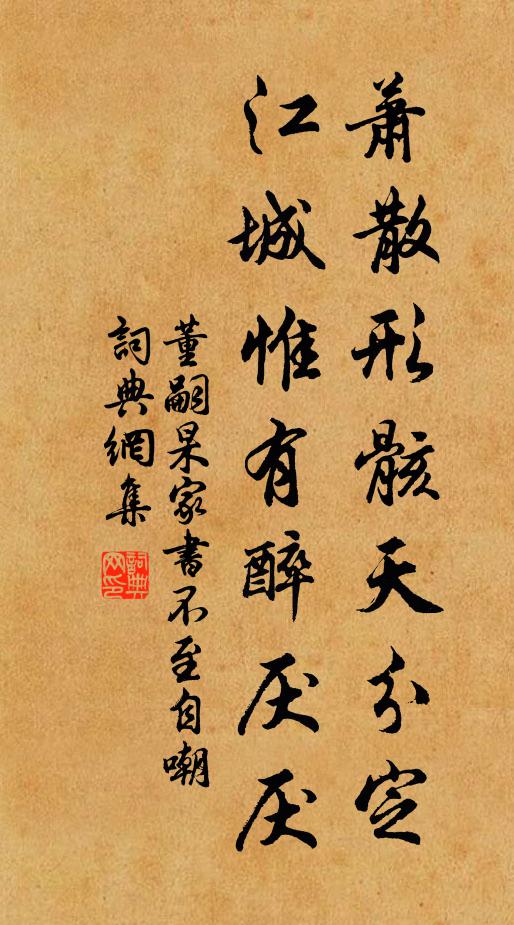 蕭散形骸天分定
江城惟有醉厌厌
董嗣杲家書不至自嘲
詞典網集
詞典网印